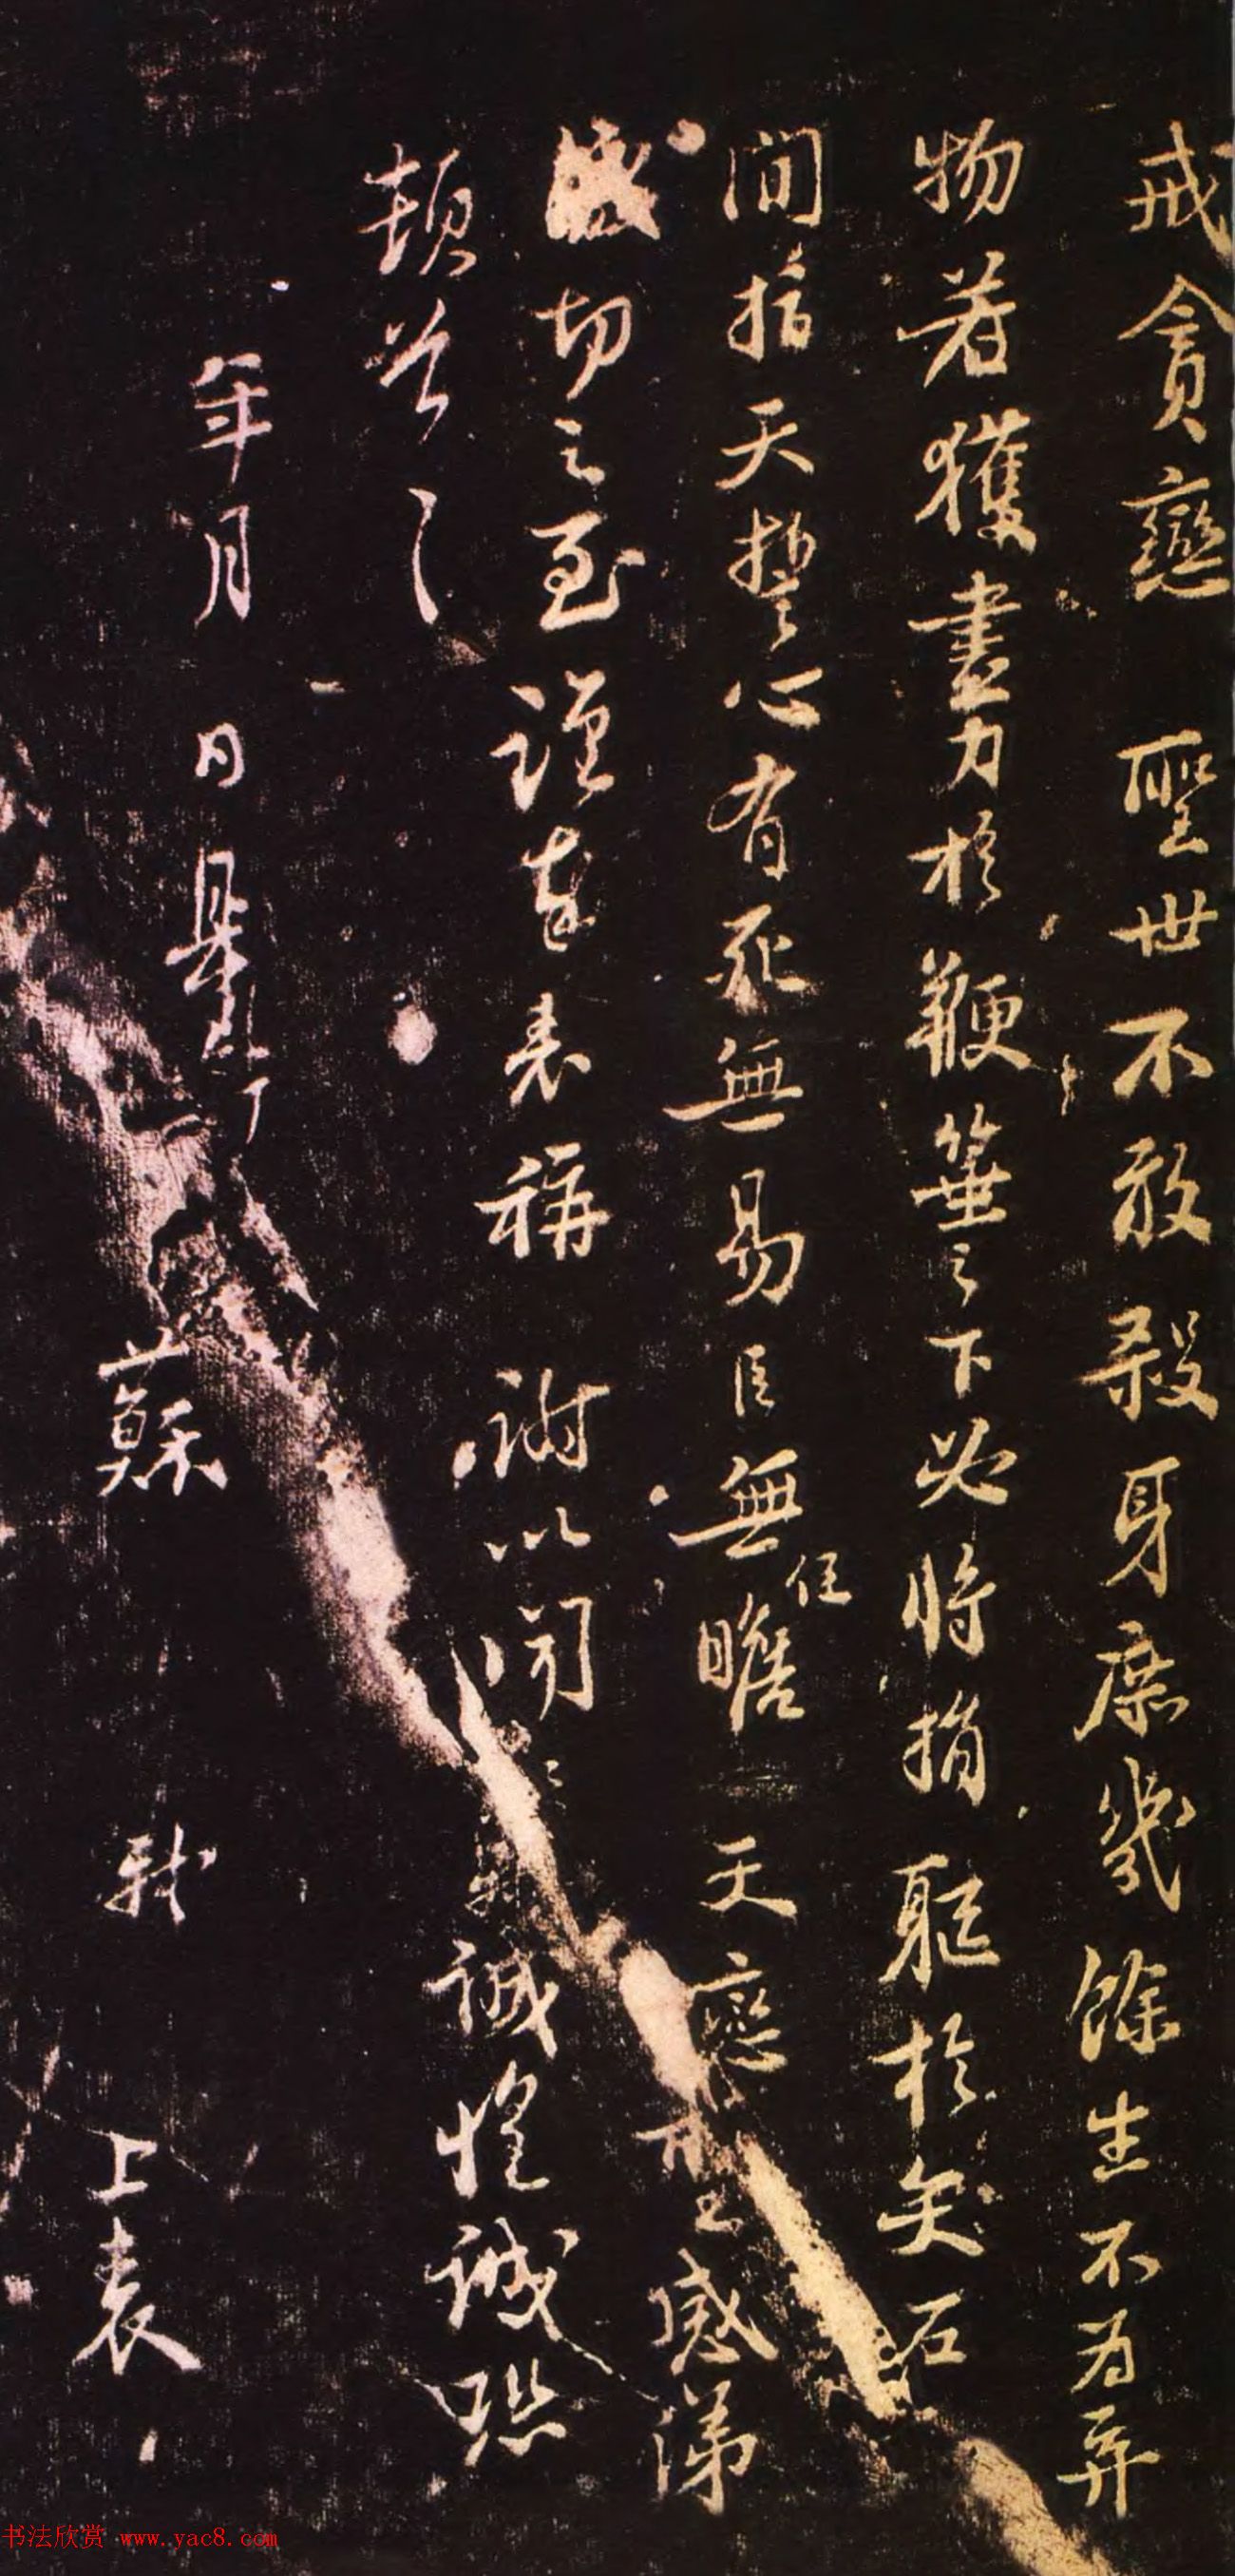 戒貪戀聖世不敢殺身庶幾餘生不為弃
物若獲盡力於鞭箠之下必將捐軀於矢石
間指天誓心有死無易臣無任瞻天戀聖感涕
誠切之至謹奉表稱謝以聞軾誠惶誠恐
頓首頓首
年月日
蘇軾上表
书法欣赏 www.yac8.com